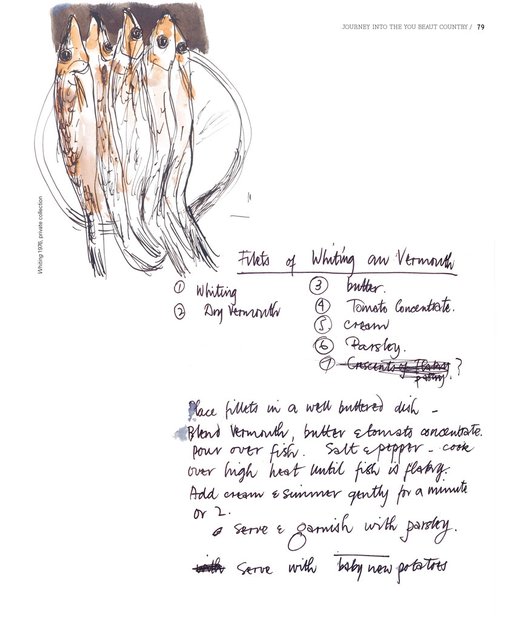 JOURNEY INTO THE YOU BEAUT COUNTRY / 79
Whiting 1976, private collection
Filets of Whiting au Vermouth
① Whiting
② Dry Vermouth
③ butter.
④ Tomato Concentrate.
⑤ cream
⑥ Parsley.
⑦ Crescents of Flakey
pastry. ?
Place fillets in a well buttered dish –
Blend Vermouth, butter & tomato concentrate.
Pour over fish. Salt & pepper – cook
over high heat until fish is flakey.
Add cream & simmer gently for a minute
or 2.
Serve & garnish with parsley.
with Serve with baby new potatoes